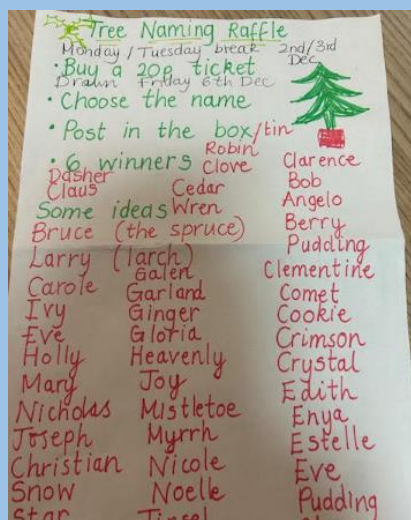 Tree Naming Raffle
Monday / Tuesday break 2nd/3rd Dec
• Buy a 20p ticket
Drawn Friday 6th Dec
• Choose the name
• Post in the box/tin
• 6 winners
Dasher
Claus
Robin
Clove
Cedar
Wren
Some ideas
Bruce (the spruce)
Larry (larch)
Carole
Ivy
Eve
Holly
Mary
Nicholas
Joseph
Christian
Snow
Star
Galen
Garland
Ginger
Gloria
Heavenly
Joy
Mistletoe
Myrrh
Nicole
Noelle
Tinsel
Clarence
Bob
Angelo
Berry
Pudding
Clementine
Comet
Cookie
Crimson
Crystal
Edith
Enya
Estelle
Eve
Pudding